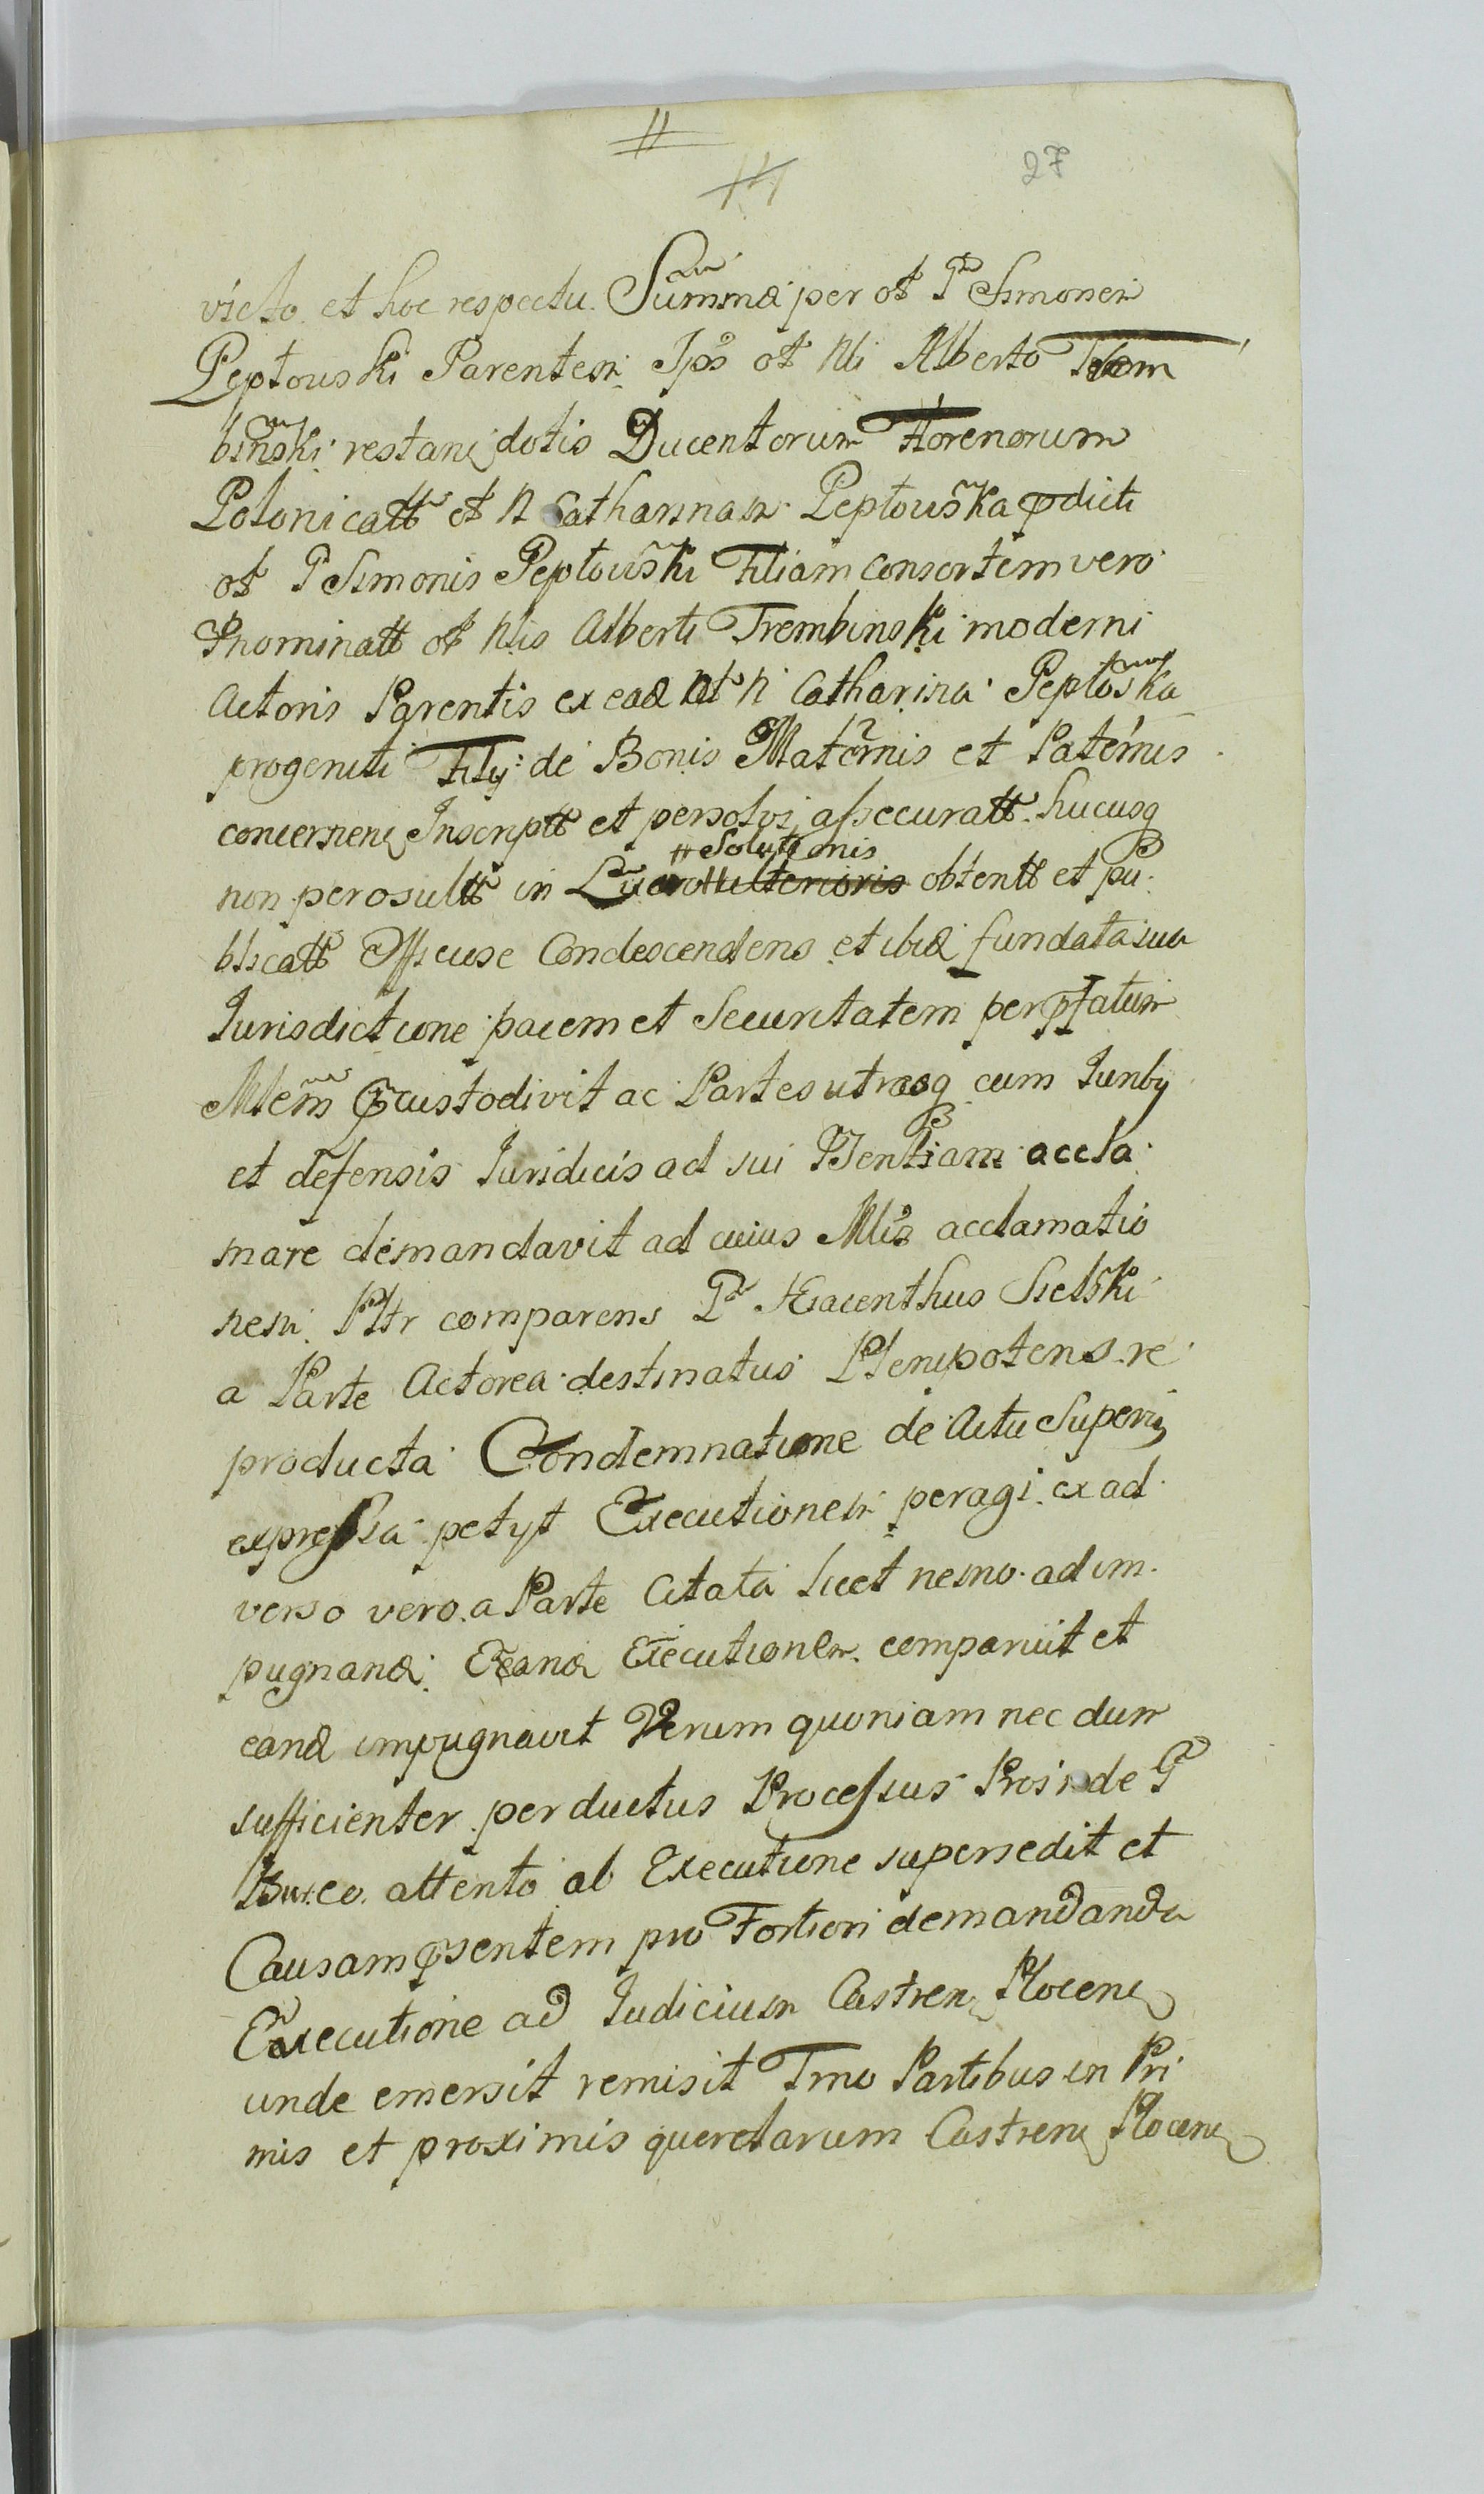 11
14
27
victo et hoc respectu Summa per ol P Simonem
Peptouski Parentem Ipso ol Nli Alberto Trem
binski restanc dotis Ducentorum Florenorum
Polonicatt et N Catharinam Peptouska pdicti
ol P Simonis Peptouski Filiam Consortem vero
Pnominatt ol Nlis Alberti Trembinski moderni
Actoris Parentis ex ead N Catharina Peptoska
progeniti Filij de Bonis Maternis et Paternis
concernenc Inscriptt et persolvi assecuratt hucusq
# Solutionis
non persolutt in Lucro ulterioris obtentt et pu
blicatt Officiose Condescendens et ibid fundata sua
Jurisdictione pacem et Securitatem per ptatum
Mlem pcustodivit ac Partes utrasq cum Junby
et defensis Juridicis ad sui Psentiam accla
mare demandavit ad cuius Mlis acclamatio
nem Pltr comparens P Hiacenthus Sielski
a Parte Actorea destinatus Plenipotens re
producta Condemnatione de Actu Superis
expressa petyt Executionem peragi ex ad
verso vero a Parte Citata licet nemo ad im
pugnand Eand Executionem comparuit et
eand impugnavit Verum quoniam nec dum
sufficienter perductus Processus Proinde P
Burco attento ab Executione supersedit et
Causam psentem pro Fortiori demandanda
Executione ad Judicium Castren Plocenc
unde emersit remisit Tmo Partibus in Pri
mis et proximis querelarum Castrenc Plocenc